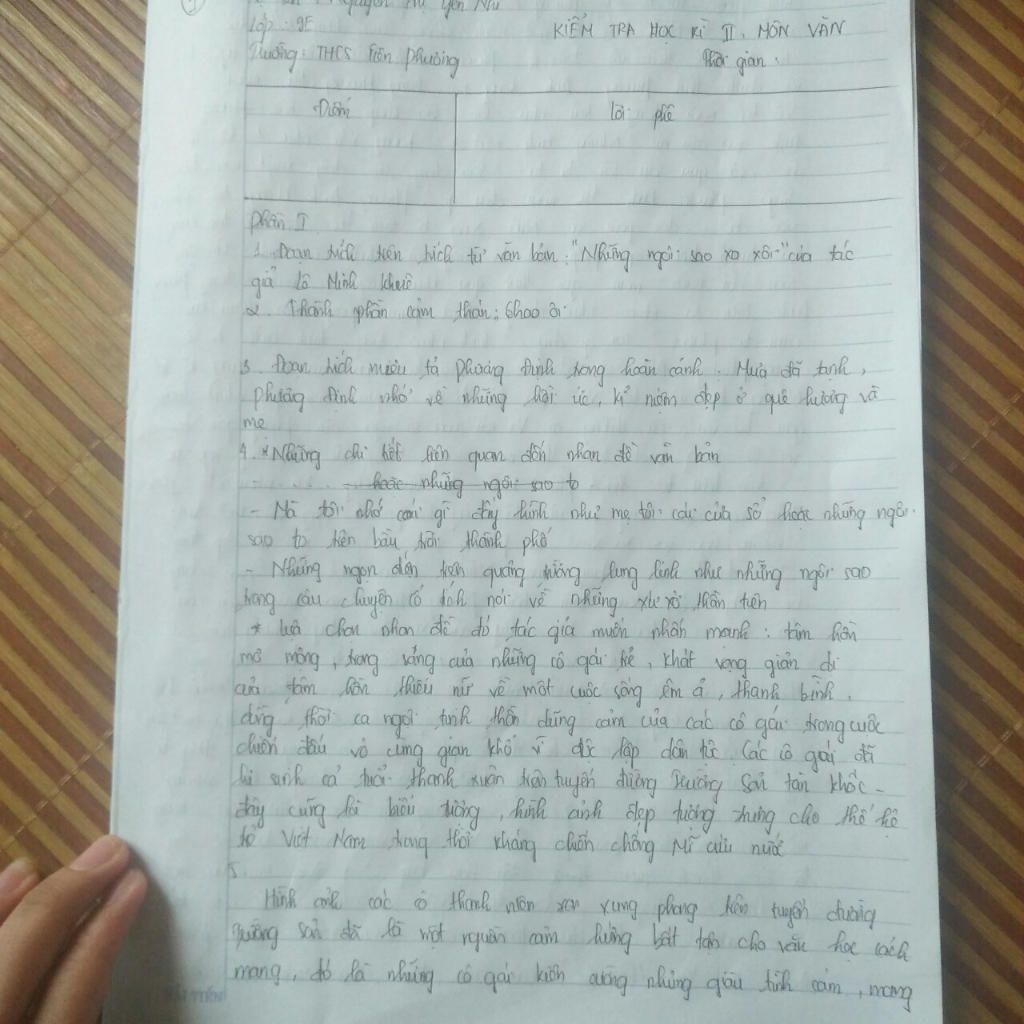 Nguyễn Yến Nhi
Lớp: 9E
KIỂM TRA HỌC KÌ II. MÔN VĂN
Trường: THCS Tiên Phương
Thời gian:
Điểm
Lời phê
Phần I
1. Đoạn trích trên trích từ văn bản: "Những ngôi sao xa xôi" của tác
giả Lê Minh Khuê
2. Thành phần cảm thán: Chao ôi
3. Đoạn trích miêu tả Phương Định trong hoàn cảnh: Mưa đã tạnh,
Phương Định nhớ về những hồi ức, kỉ niệm đẹp ở quê hương và
mẹ
4. * Những chi tiết liên quan đến nhan đề văn bản
hoặc những ngôi sao to
- Mà tôi nhớ cái gì đấy hình như mẹ tôi, cái cửa sổ hoặc những ngôi
sao to trên bầu trời thành phố
- Những ngọn đèn trên quảng trường lung linh như những ngôi sao
trong câu chuyện cổ tích nói về những xứ sở thần tiên
* Lựa chọn nhan đề đó tác giả muốn nhấn mạnh: tâm hồn
mơ mộng, trong sáng của những cô gái trẻ, khát vọng giản dị
của tâm hồn thiếu nữ về một cuộc sống êm ả, thanh bình.
đồng thời ca ngợi tinh thần dũng cảm của các cô gái trong cuộc
chiến đấu vô cùng gian khổ vì độc lập dân tộc. Các cô gái đã
hi sinh cả tuổi thanh xuân trên tuyến đường Trường Sơn tàn khốc -
đây cũng là biểu tượng, hình ảnh đẹp tượng trưng cho thế hệ
trẻ Việt Nam trong thời kháng chiến chống Mĩ cứu nước
5.
Hình ảnh các cô thanh niên xung phong trên tuyến đường
Trường Sơn đã là một nguồn cảm hứng bất tận cho văn học cách
mạng, đó là những cô gái kiên cường nhưng giàu tình cảm, mang